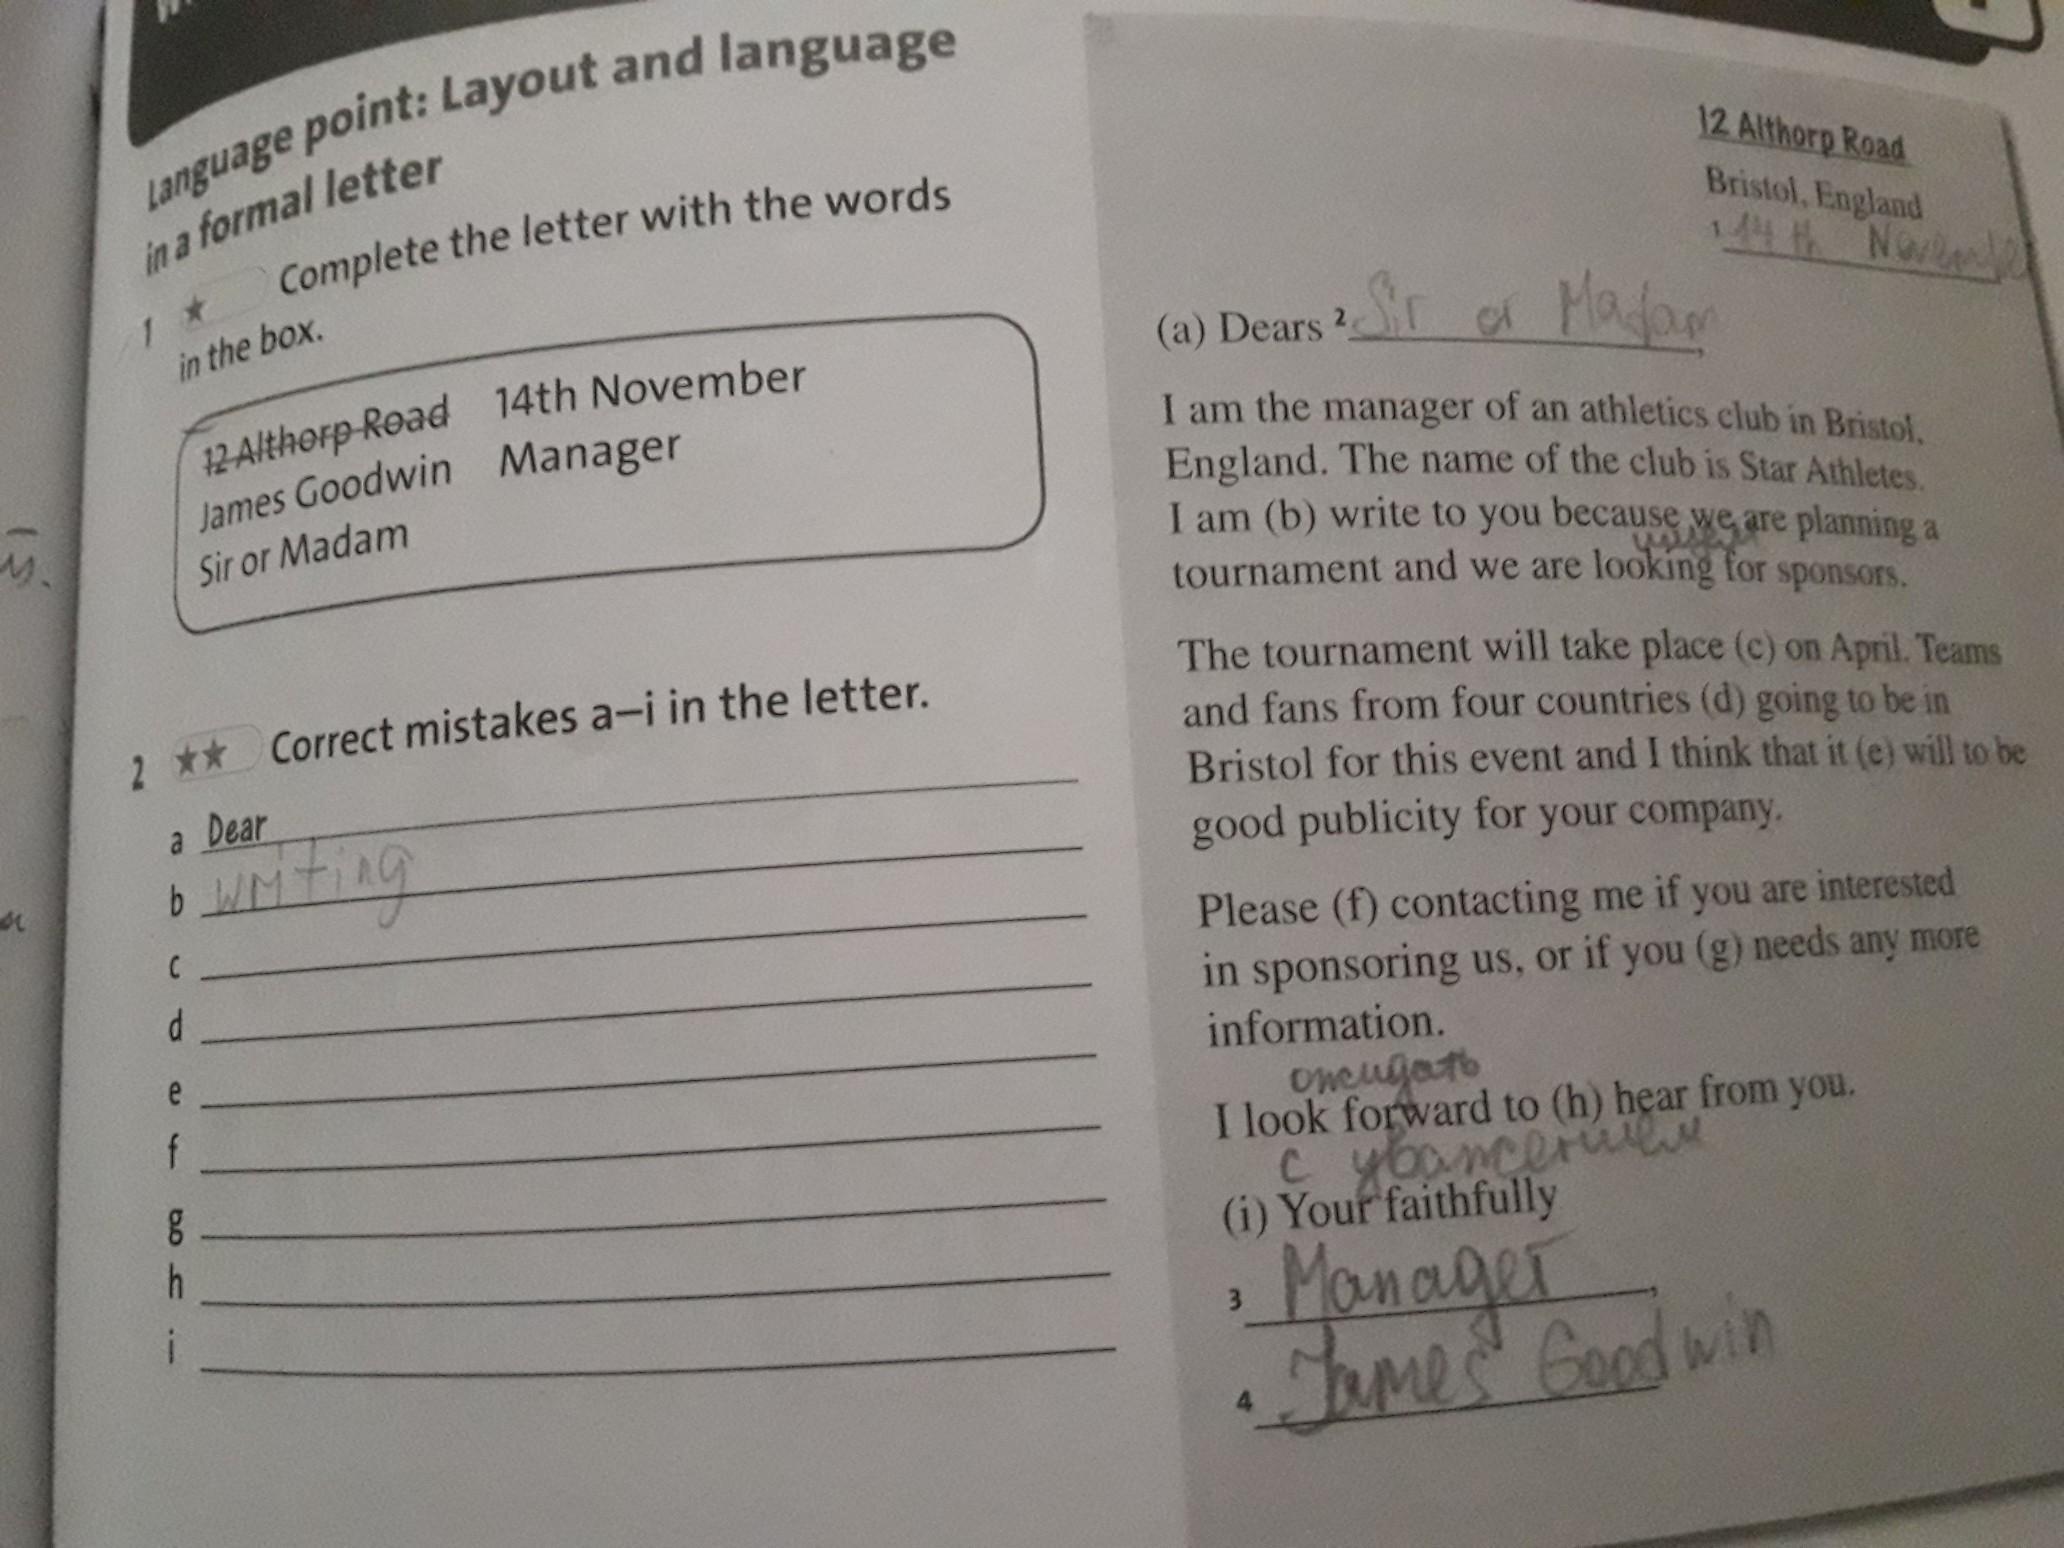 Language point: Layout and language
in a formal letter
1 ★ Complete the letter with the words
in the box.
12 Althorp Road 14th November
James Goodwin Manager
Sir or Madam
2 ★★ Correct mistakes a–i in the letter.
a Dear
b writing
c
d
e
f
g
h
i
12 Althorp Road
Bristol, England
1 14th November
(a) Dears 2 Sir or Madam,
I am the manager of an athletics club in Bristol,
England. The name of the club is Star Athletes.
I am (b) write to you because we are planning a
tournament and we are looking for sponsors.
The tournament will take place (c) on April. Teams
and fans from four countries (d) going to be in
Bristol for this event and I think that it (e) will to be
good publicity for your company.
Please (f) contacting me if you are interested
in sponsoring us, or if you (g) needs any more
information.
ожидать
I look forward to (h) hear from you.
с уважением
(i) Your faithfully
3 Manager,
4 James Goodwin